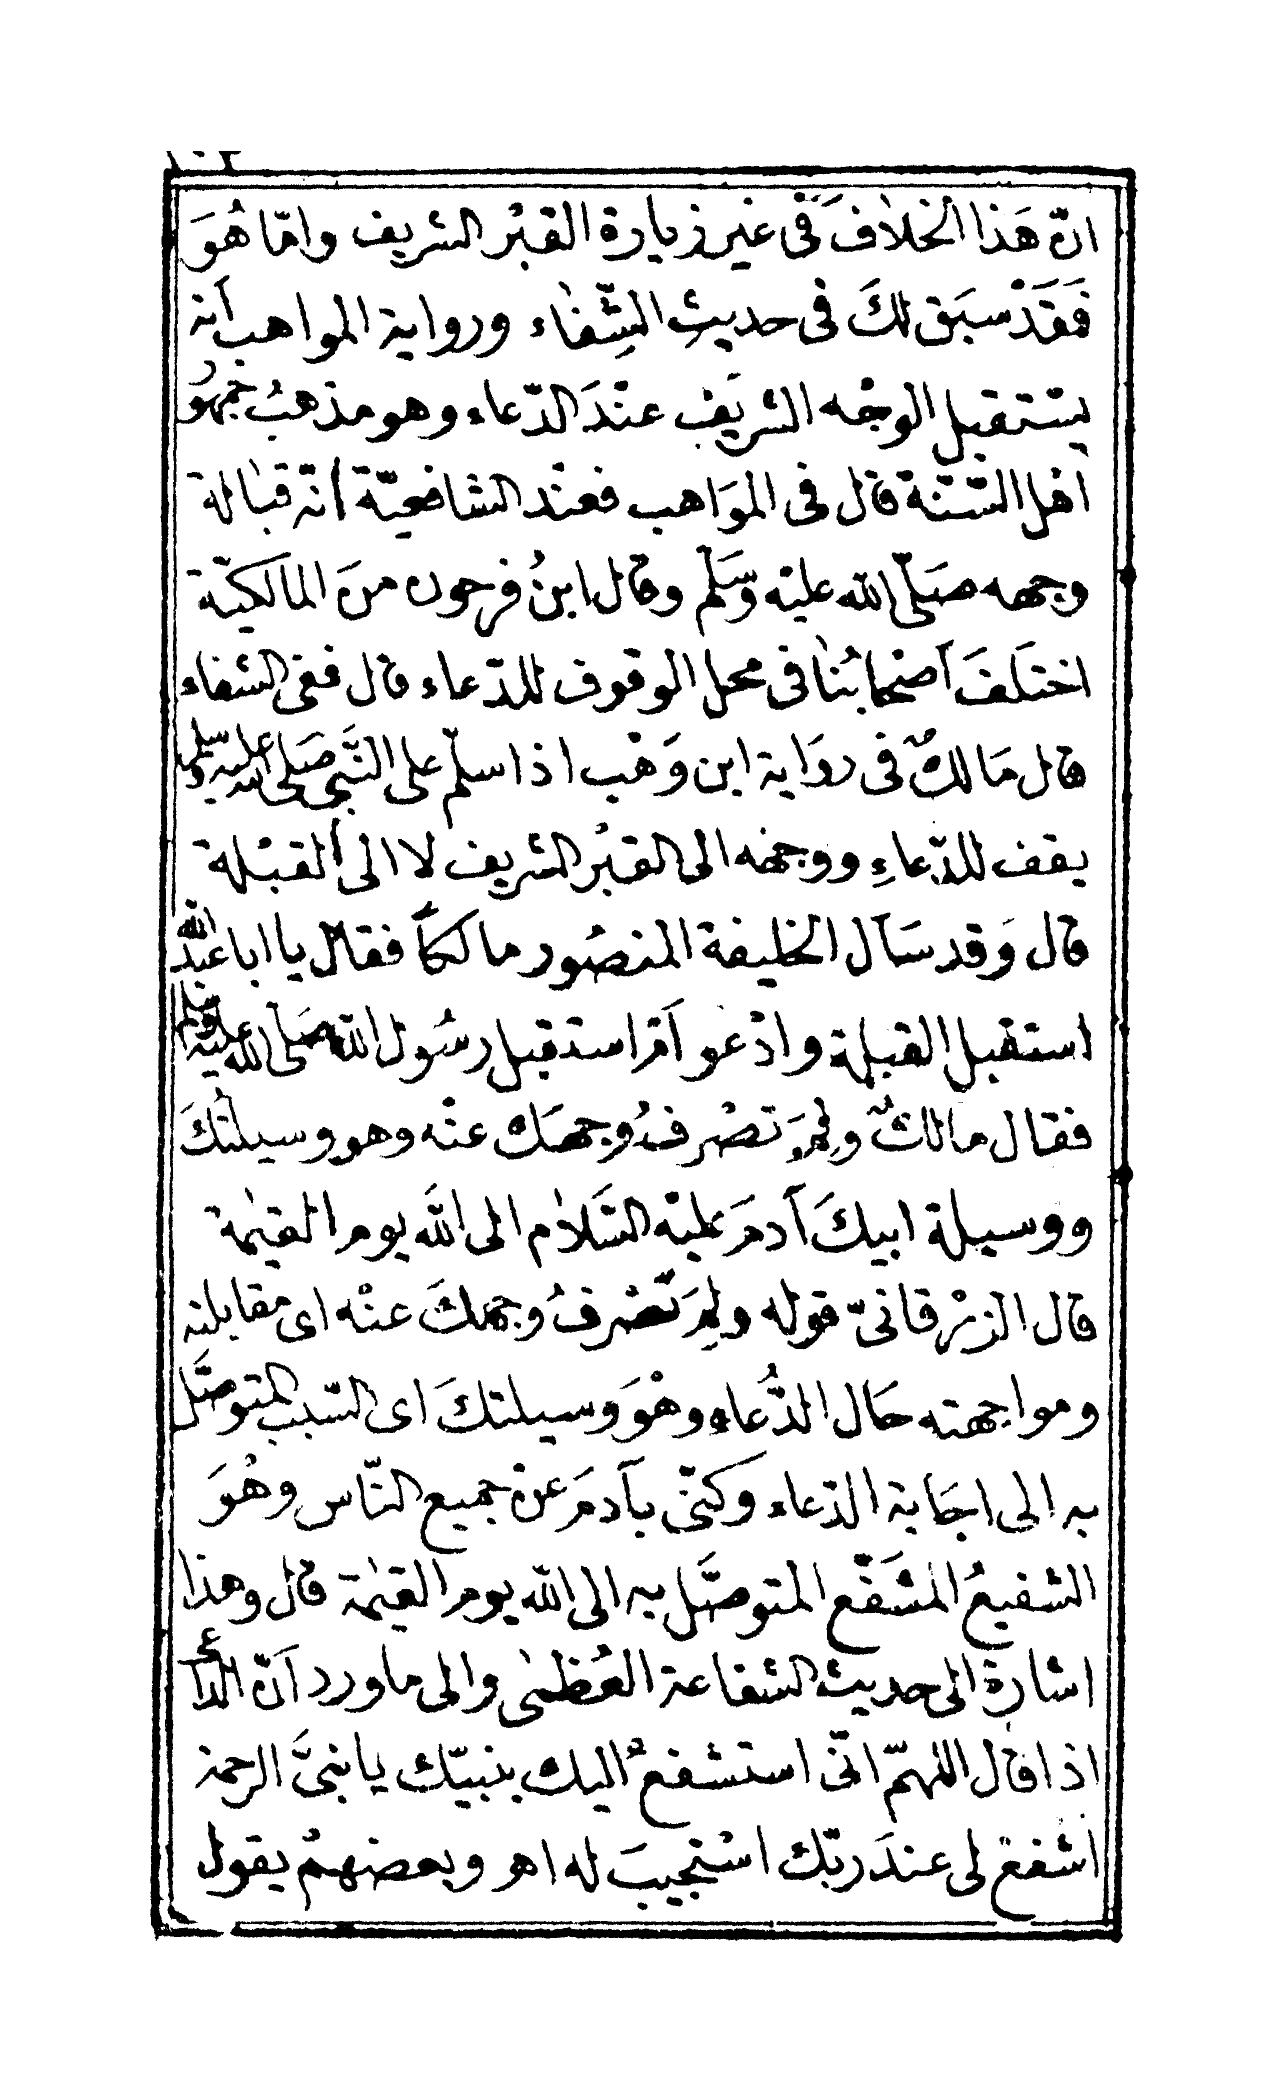 انّ هَذا الخلافَ فى غير زيارة القبْر الشريف وامّا هُوَ
فَقَدْ سبَق لكَ فى حديثِ الشِّفاء ورواية المواهب أنه
يستقبل الوجْه الشريف عنْدَ الدّعاء وهو مذهبُ جمهُو
أهل السّنّة قال فى الموَاهب فعنْد الشافعيّة أنّه قبالة
وجهه صَلّى الله عليْه وَسَلّم وقال ابنُ فرحون منَ المالكيّة
اختلَفَ أصْحابُنا فى محل الوقوف للدّعاء قال ففى الشفاء
قال مَالكٌ فى روَاية ابن وَهْب اذا سلّم على النَّبى صَلى الله عليه وسلم
يقف للدّعاءِ ووجهه الى القبْر الشريف لا الى القبْلة
قال وَقد سَأل الخليفة المنصُور مالكاً فقال يا ابا عبْد الله
استقبل القبلة وادْعو أم استقبل رسُول الله صَلى الله عليْه وسلم
فقال مالكٌ ولِمَ تصْرفُ وجهَك عنْه وهو وسيلتُكَ
ووسيلة ابيكَ آدمَ عليْه السَّلام الى الله يوم القيٰمة
قال الزرْقانىّ قوله ولِمَ تَصْرفُ وجهكَ عنْه اى مقابلته
ومواجهته حَال الدُّعاء وهْوَ وسيلتكَ اى السّبب المتوصَّل
به الى اجَابة الدّعاء وكنّى بآدمَ عنْ جميع النّاس وهُوَ
الشفيعُ المشَفّع المتوصَّل به الى الله يوم القيٰمة قال وهذا
اشارة الى حديث الشفاعة العُظمٰى والى ما ورد أنّ الدّاعى
اذا قال اللهمّ انّى استشفعُ اليك بنبيّك يا نبىَّ الرحمة
اشفعْ لى عندَ ربّك اسْتجيبَ له اهـ وبعضهمْ يقول